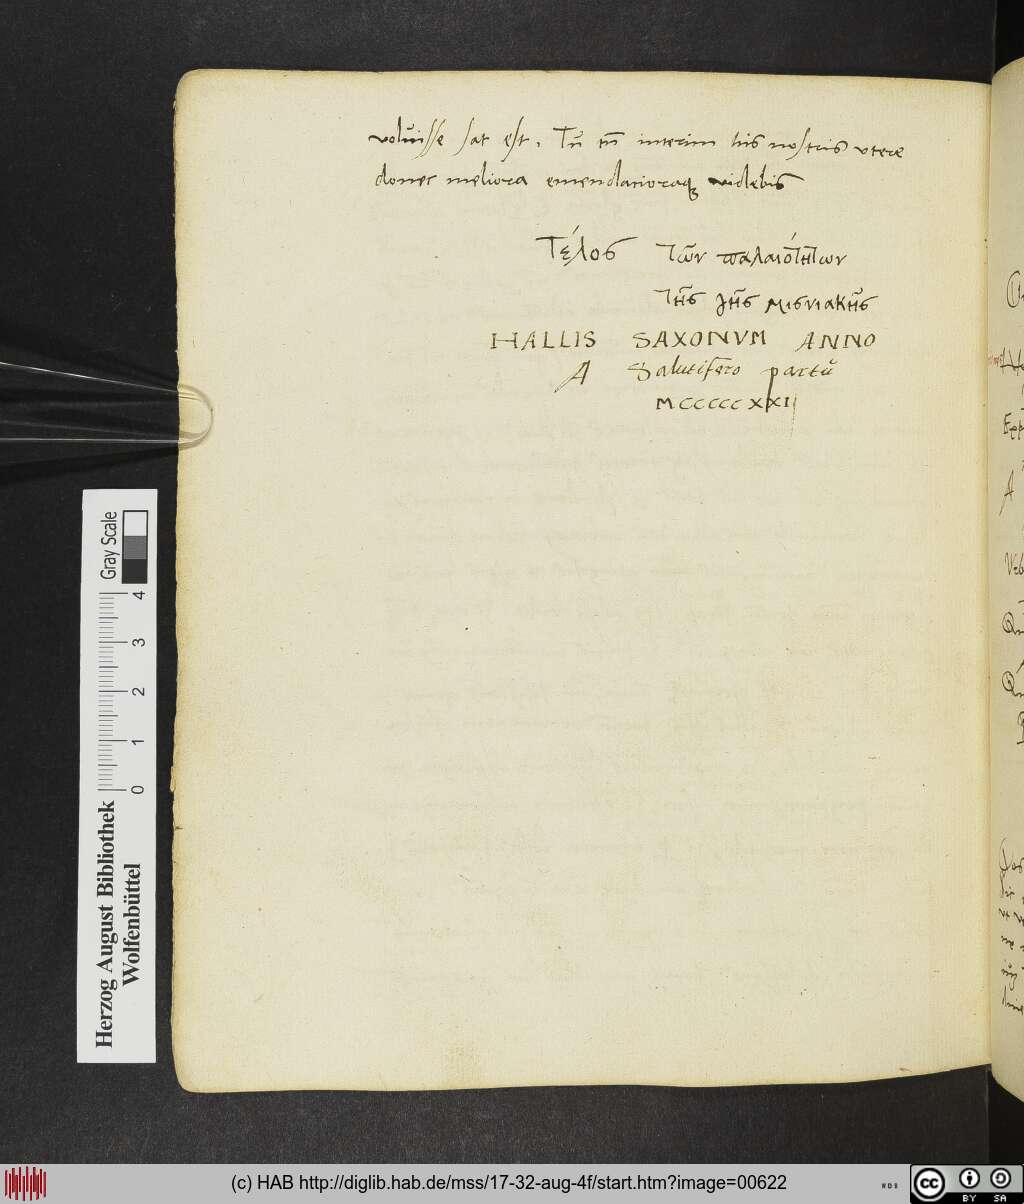 voluisse sat est. Tū tn̄ interim his nostris vtere
donec meliora emendatioraq videbis
Τέλος τῶν παλαιοτήτων
τῆς γῆς μισνιακῆς
HALLIS SAXONVM ANNO
A Salutifero partū
MCCCCCXXII
Gray Scale
0 1 2 3 4
Herzog August Bibliothek
Wolfenbüttel
(c) HAB http://diglib.hab.de/mss/17-32-aug-4f/start.htm?image=00622
cc BY SA